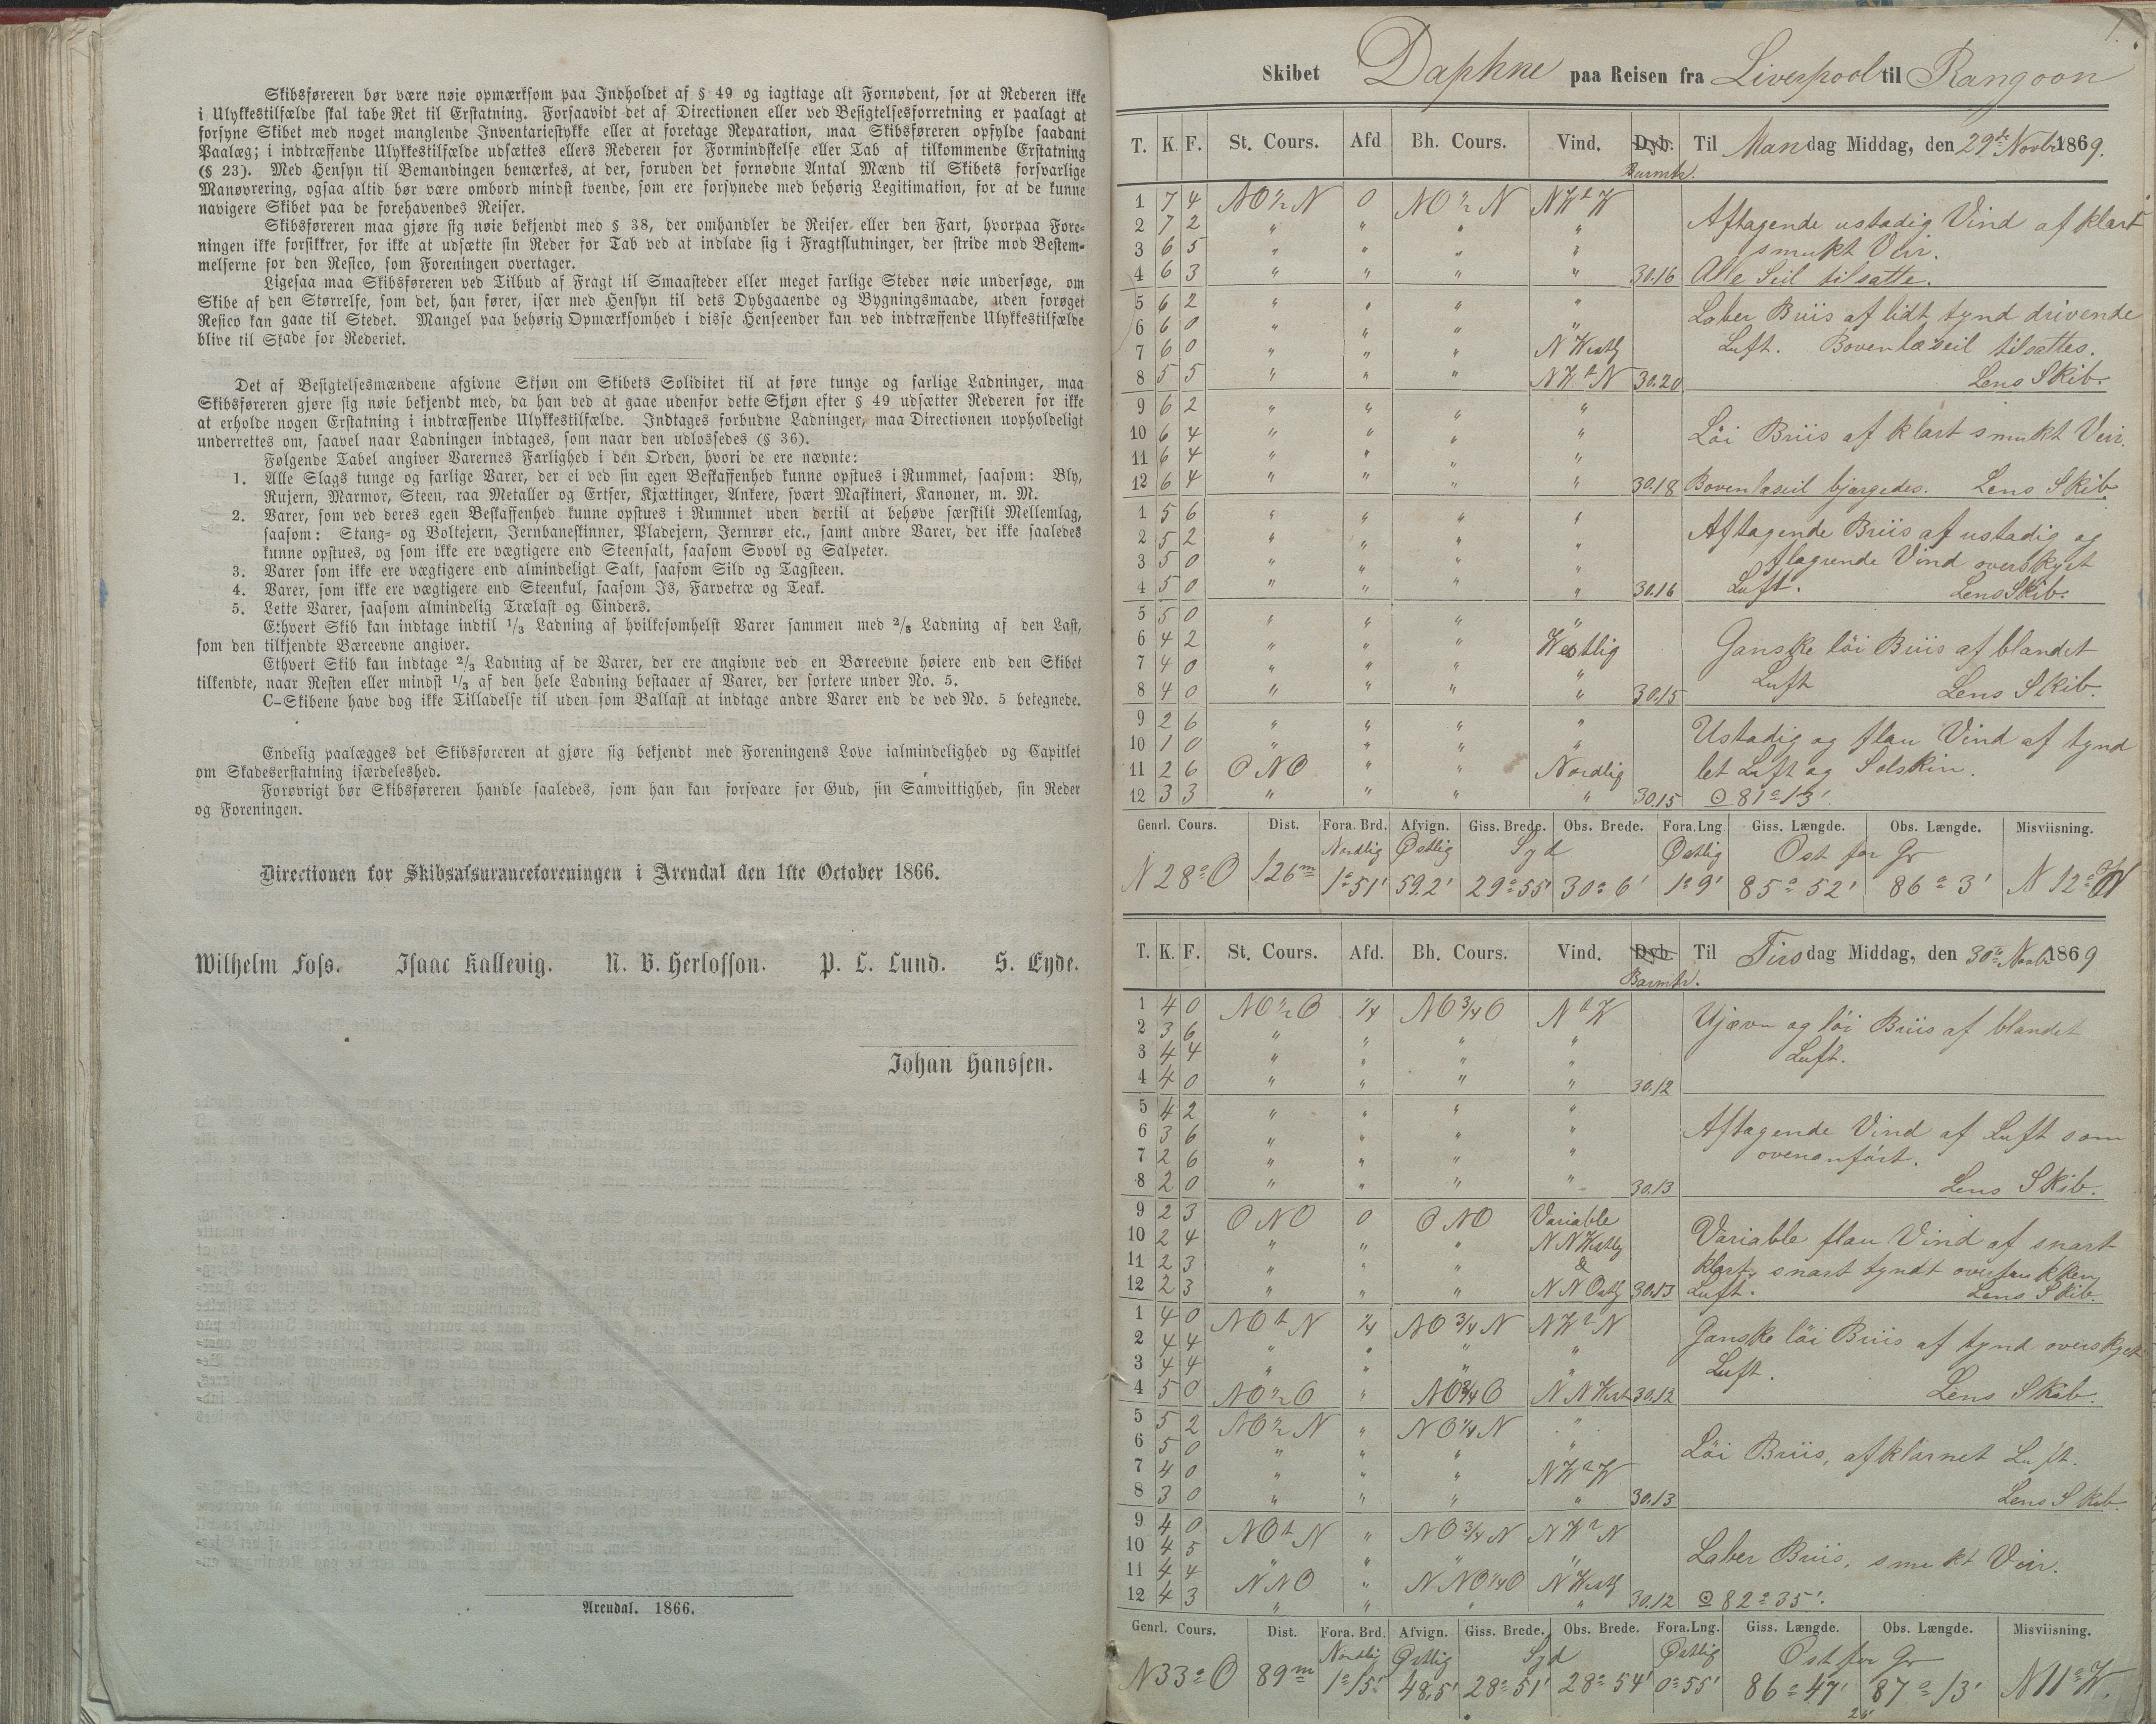 Skibsføreren bør være nøie opmærksom paa Indholdet af § 49 og iagttage alt Fornødent, for at Rederen ikke
i Ulykkestilfælde skal tabe Ret til Erstatning. Forsaavidt det af Directionen eller ved Besigtelsesforretning er paalagt at
forsyne Skibet med noget manglende Inventariestykke eller at foretage Reparation, maa Skibsføreren opfylde saadant
Paalæg; i indtræffende Ulykkestilfælde udsættes ellers Rederen for Formindskelse eller Tab af tilkommende Erstatning
(§ 23). Med Hensyn til Bemandingen bemærkes, at der, foruden det fornødne Antal Mænd til Skibets forsvarlige
Manøvrering, ogsaa altid bør være ombord mindst tvende, som ere forsynede med behørig Legitimation, for at de kunne
navigere Skibet paa de forehavendes Reiser.
Skibsføreren maa gjøre sig nøie bekjendt med § 38, der omhandler de Reiser eller den Fart, hvorpaa Fore-
ningen ikke forsikkrer, for ikke at udsætte sin Reder for Tab ved at indlade sig i Fragtslutninger, der stride mod Bestem-
melserne for den Resico, som Foreningen overtager.
Ligesaa maa Skibsføreren ved Tilbud af Fragt til Smaasteder eller meget farlige Steder nøie undersøge, om
Skibe af den Størrelse, som det, han fører, især med Hensyn til dets Dybgaaende og Bygningsmaade, uden forøget
Resico kan gaae til Stedet. Mangel paa behørig Opmærksomhed i disse Henseender kan ved indtræffende Ulykkestilfælde
blive til Skade for Rederiet.
Det af Besigtelsesmændene afgivne Skjøn om Skibets Soliditet til at føre tunge og farlige Ladninger, maa
Skibsføreren gjøre sig nøie bekjendt med, da han ved at gaae udenfor dette Skjøn efter § 49 udsætter Rederen for ikke
at erholde nogen Erstatning i indtræffende Ulykkestilfælde. Indtages forbudne Ladninger, maa Directionen uopholdeligt
underrettes om, saavel naar Ladningen indtages, som naar den udlossedes (§ 36).
Følgende Tabel angiver Varernes Farlighed i den Orden, hvori de ere nævnte:
1. Alle Slags tunge og farlige Varer, der ei ved sin egen Beskaffenhed kunne opstues i Rummet, saasom: Bly,
Rujern, Marmor, Steen, raa Metaller og Ertser, Kjættinger, Ankere, svært Maskineri, Kanoner, m. M.
2. Varer, som ved deres egen Beskaffenhed kunne opstues i Rummet uden dertil at behøve særskilt Mellemlag,
saasom: Stang- og Boltejern, Jernbaneskinner, Pladejern, Jernrør etc., samt andre Varer, der ikke saaledes
kunne opstues, og som ikke ere vægtigere end Steensalt, saasom Svovl og Salpeter.
3. Varer som ikke ere vægtigere end almindeligt Salt, saasom Sild og Tagsteen.
4. Varer, som ikke ere vægtigere end Steenkul, saasom Is, Farvetræ og Teak.
5. Lette Varer, saasom almindelig Trælast og Cinders.
Ethvert Skib kan indtage indtil 1/3 Ladning af hvilkesomhelst Varer sammen med 2/3 Ladning af den Last,
som den tilkjendte Bæreevne angiver.
Ethvert Skib kan indtage 2/3 Ladning af de Varer, der ere angivne ved en Bæreevne høiere end den Skibet
tilkendte, naar Resten eller mindst 1/3 af den hele Ladning bestaaer af Varer, der sortere under No. 5.
C-Skibene have dog ikke Tilladelse til uden som Ballast at indtage andre Varer end de ved No. 5 betegnede.
Endelig paalægges det Skibsføreren at gjøre sig bekjendt med Foreningens Love ialmindelighed og Capitlet
om Skadeserstatning isærdeleshed.
Forøvrigt bør Skibsføreren handle saaledes, som han kan forsvare for Gud, sin Samvittighed, sin Reder
og Foreningen.
Directionen for Skibsassuranceforeningen i Arendal den 1ste October 1866.
Wilhelm Foss. Isaac Kallevig. N. B. Herlofson. P. C. Lund. S. Eyde.
Johan Hanssen.
Arendal. 1866.
1.
Skibet Daphne paa Reisen fra Liverpool til Rangoon
T. K. F. St. Cours. Afd Bh. Cours. Vind. Dyb. Til Mandag Middag, den 29de Novbr 1869.
Barmtr.
1 7 4 NO ½ N 0 NO ½ N NWtW
2 7 2 " " " " Aftagende ustadig Vind af klart
3 6 5 " " " " smukt Veir.
4 6 3 " " " " 30.16 Alle Seil tilsatte.
5 6 2 " " " " Laber Briis af lidt tynd drivende
6 6 0 " " " "
7 6 0 " " " N Westlg Luft. Bovenlæseil tilsattes.
8 5 5 " " " NWtN 30.20 Lens Skib.
9 6 2 " " " "
10 6 4 " " " " Löi Briis af klart smukt Veir.
11 6 4 " " " "
12 6 4 " " " " 30.18 Bovenlæseil bjærgedes. Lens Skib
1 5 6 " " " "
2 5 2 " " " " Aftagende Briis af ustadig og
3 5 0 " " " " flagrende Vind overskyet
4 5 0 " " " " 30.16 Luft. Lens Skib.
5 5 0 " " " "
6 4 2 " " " Westlig Ganske löi Briis af blandet
7 4 0 " " " "
8 4 0 " " " " 30.15 Luft Lens Skib.
9 2 6 " " " "
10 1 0 " " " " Ustadig og flau Vind af tynd
11 2 6 ONO " " Nordlig let Luft og Solskin.
12 3 3 " " " " 30.15 ⊙ 81° 13'.
Genrl. Cours. Dist. Fora. Brd. Afvign. Giss. Brede. Obs. Brede. Fora.Lng Giss. Længde. Obs. Længde. Misviisning.
Nordlig Østlig Syd Østlig Ost for Gr
N 28° O 126m 1° 51' 59.2' 29° 55' 30° 6' 1° 9' 85° 52' 86° 3' N 12° W
T. K. F. St. Cours. Afd. Bh. Cours. Vind. Dyb. Til Tirsdag Middag, den 30te Novbr 1869
Barmtr.
1 4 0 NO ½ O ¼ NO ¾ O NtW
2 3 6 " " " " Ujævn og löi Briis af blandet
3 4 4 " " " " Luft.
4 4 0 " " " " 30.12
5 4 2 " " " "
6 3 6 " " " " Aftagende Vind af Luft som
7 2 6 " " " " ovenanført.
8 2 0 " " " " 30.13 Lens Skib.
9 2 3 ONO 0 ONO Variable
10 2 4 " " " NNWestlg Variable flau Vind af snart
11 2 3 " " " & klart, snart tyndt overtrukken
12 2 3 " " " NNOstlg 30.13 Luft. Lens Skib.
1 4 0 NOtN ¼ NO ¾ N NWtN
2 4 4 " " " " Ganske löi Briis af tynd overskyet
3 4 4 " " " " Luft.
4 5 0 NO ½ O " NO ¾ O NNWest 30.12 Lens Skib.
5 5 2 NO ½ N " NO ¼ N "
6 5 0 " " " " Löi Briis, afklarnet Luft.
7 4 0 " " " NWtW
8 3 0 " " " " 30.13 Lens Skib.
9 4 0 NOtN " NO ¾ N NWtN
10 4 5 " " " " Laber Briis, smukt Veir.
11 4 4 NNO " NNO ¼ O N Westlg
12 4 3 " " " " 30.12 ⊙ 82° 35'.
Genrl. Cours. Dist. Fora. Brd. Afvign. Giss. Brede. Obs. Brede. Fora.Lng. Giss. Længde. Obs. Længde. Misviisning.
Nordlig Østlig Syd Østlig Ost for Gr
N 33° O 89m 1° 15' 48.5' 28° 51' 28° 54' 0° 55' 86° 47' 87° 13' N 11° W.
26'